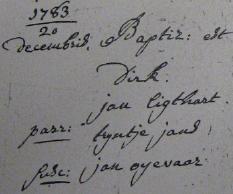 1783
20
decembris. Baptiz: est
Dirk.
jan ligthart.
parr: tyntje jans,
susc: jan oyevaar